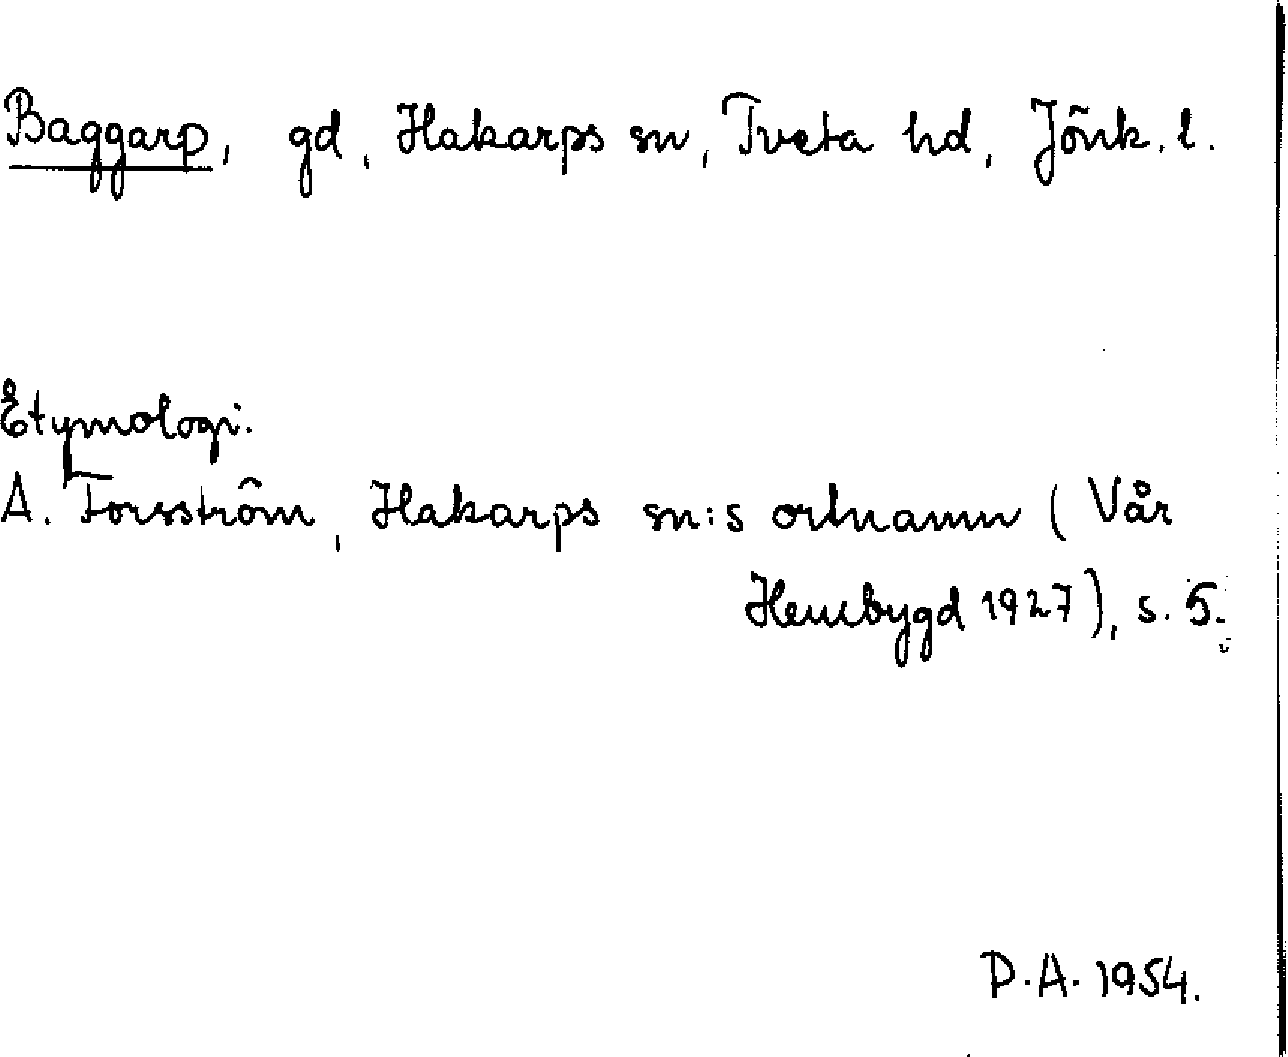 Baggarp, gd, Hakarps sn, Tveta hd, Jönk. l.
Etymologi:
A. Forsström, Hakarps sn:s ortnamn (Vår
Hembygd 1927), s. 5.
P.A. 1954.